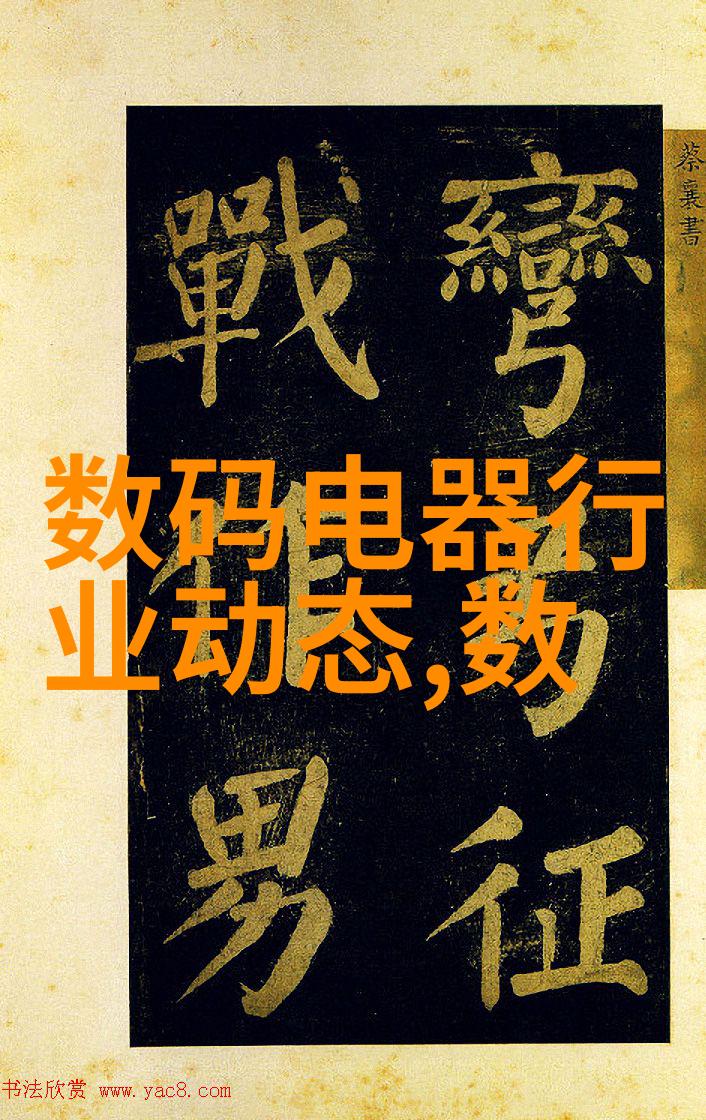 蔡襄書
彎
征
戰
男
数码电器行
业动态,数
书法欣赏 www.yac8.com